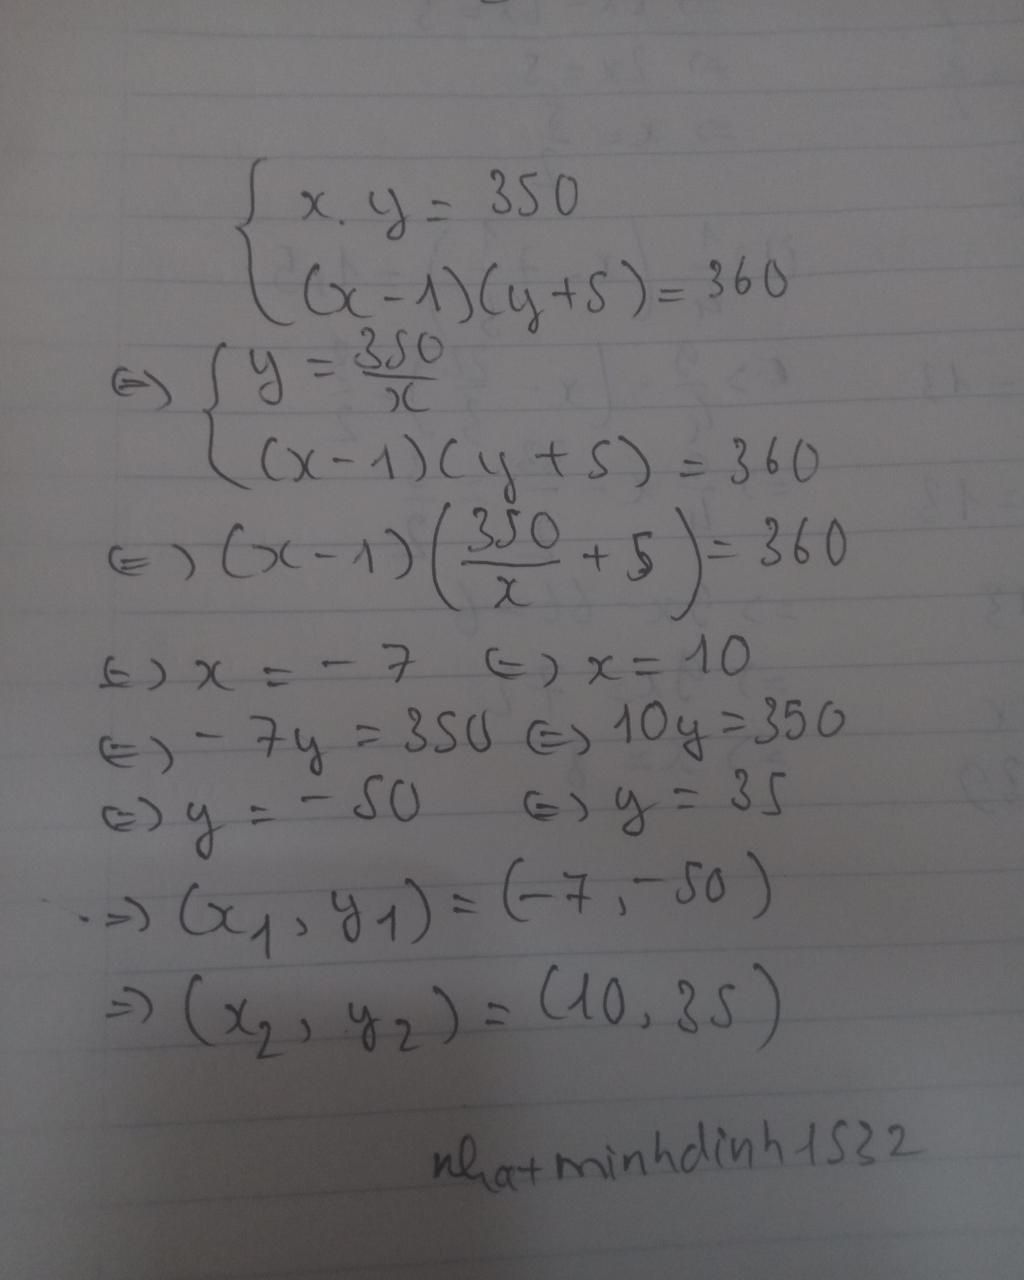 { x. y = 350
(x - 1)(y + 5) = 360
⇔ { y = 350/x
(x - 1)(y + 5) = 360
⇔ (x - 1)(350/x + 5) = 360
⇔ x = - 7 ⇔ x = 10
⇔ - 7y = 350 ⇔ 10y = 350
⇔ y = - 50 ⇔ y = 35
⇒ (x₁, y₁) = (-7, -50)
⇒ (x₂, y₂) = (10, 35)
nhatminhdinh1532